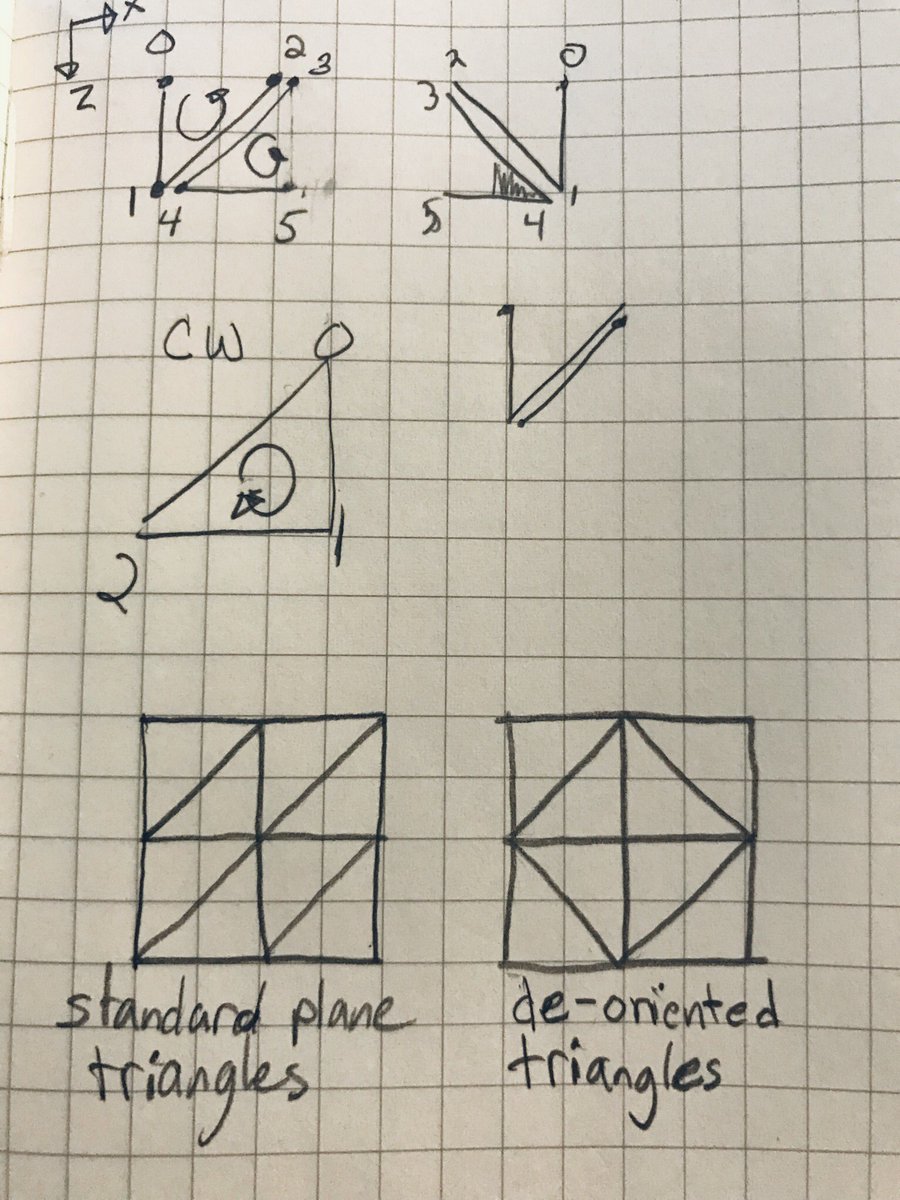 x
0 2 3 2 0
z 3
1 4 5 5 4 1
CW 0
2 1
standard plane
triangles
de-oriented
triangles